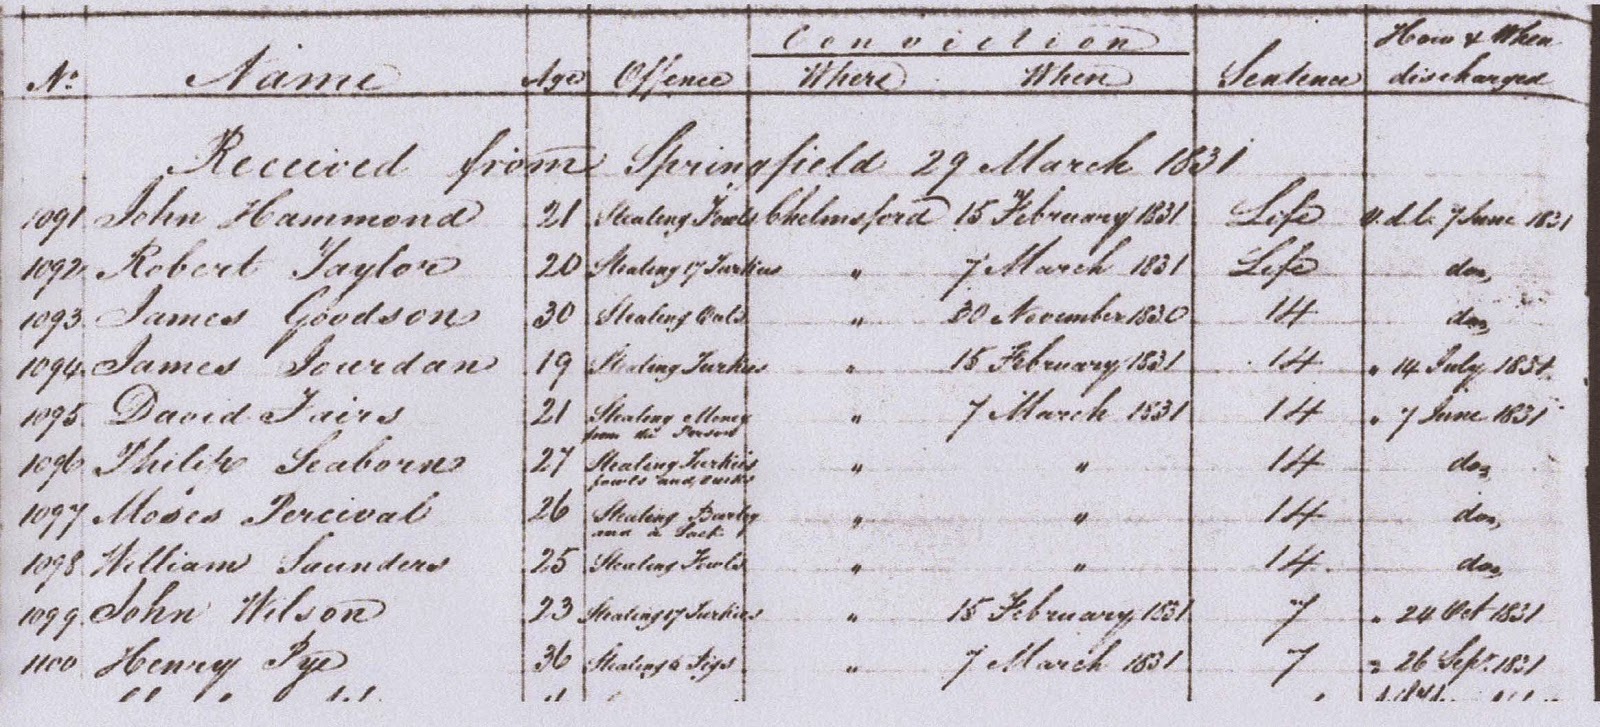 Conviction How & When
No. Name Age Offence Where When Sentence discharged
Received from Springfield 29 March 1831
1091 John Hammond 21 Stealing Fowls Chelmsford 15 February 1831 Life V.d.L. 7 June 1831
1092 Robert Taylor 20 Stealing 17 Turkies " 7 March 1831 Life do,
1093 James Goodson 30 Stealing Oats " 30 November 1830 14 do,
1094 James Jourdan 19 Stealing Turkies " 15 February 1831 14 " 14 July 1831
1095 David Fairs 21 Stealing Money " 7 March 1831 14 " 7 June 1831
from the Person
1096 Philip Seaborn 27 Stealing Turkies " " 14 do,
fowls and ducks
1097 Moses Percival 26 Stealing Barley " " 14 do,
and a Sack
1098 William Saunders 25 Stealing Fowls " " 14 do,
1099 John Wilson 23 Stealing 17 Turkies " 15 February 1831 7 " 24 Oct 1831
1100 Henry Pye 36 Stealing Pigs " 7 March 1831 7 " 26 Sepr. 1831